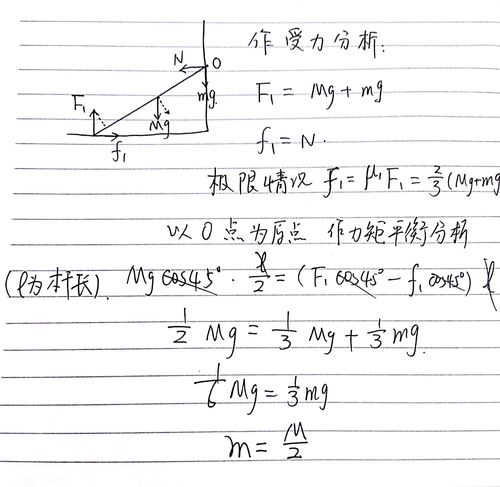 作受力分析:
N O
F₁ mg
Mg
f₁
F₁ = Mg + mg
f₁ = N.
极限情况 f₁ = μ₁F₁ = 2/3 (Mg+mg
以O点为原点 作力矩平衡分析
(l为杆长). Mg cos45° · l/2 = (F₁ cos45° - f₁ cos45°) l
1/2 Mg = 1/3 Mg + 1/3 mg.
1/6 Mg = 1/3 mg
m = M/2